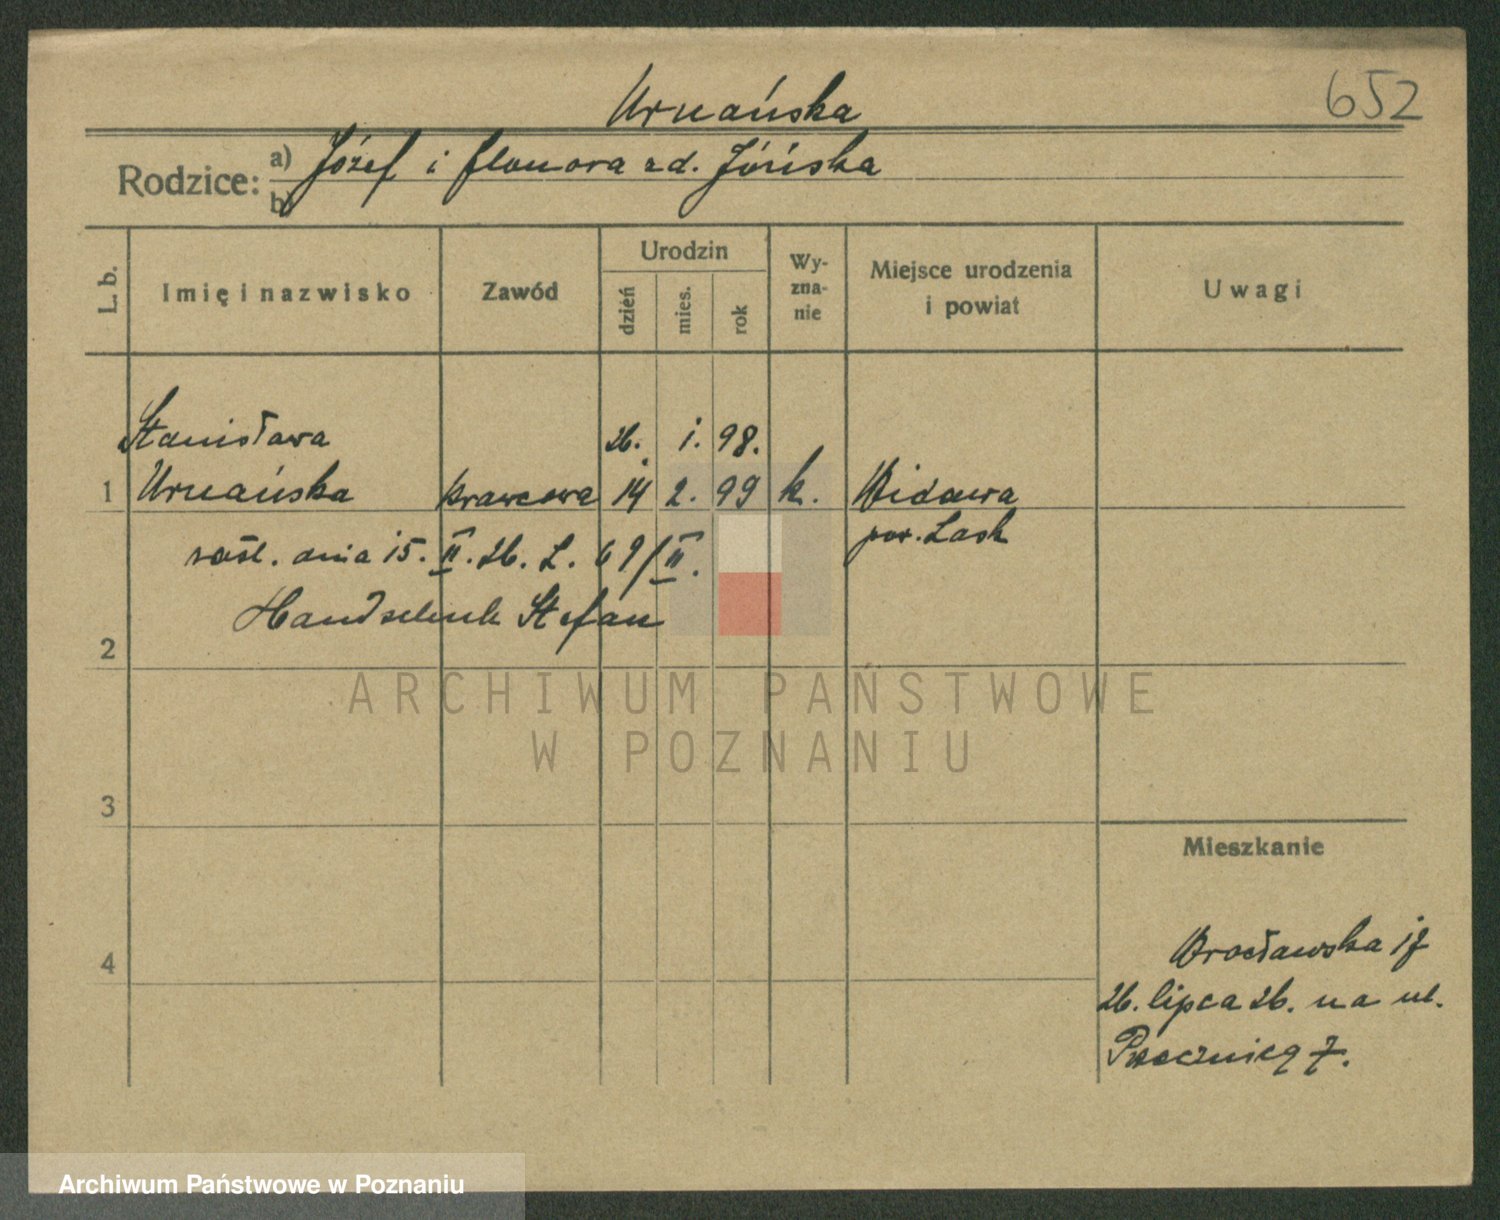 652
Urnańska
Rodzice: a) Józef i Eleonora zd. Jóńska
b)
L. b.
Imię i nazwisko
Zawód
Urodzin
dzień
mies.
rok
Wy-
zna-
nie
Miejsce urodzenia
i powiat
Uwagi
Stanisława 26. 1. 98.
1 Urnańska krawcowa 14 2. 99 k. Widawa
pow. Lask
zaśl. dnia 15. II. 26. L. 69/II.
Handschuh Stefan
2
ARCHIWUM PAŃSTWOWE
W POZNANIU
3
Mieszkanie
4
Wrocławska 17
26. lipca 26. na ul.
Przecznicą 7.
Archiwum Państwowe w Poznaniu